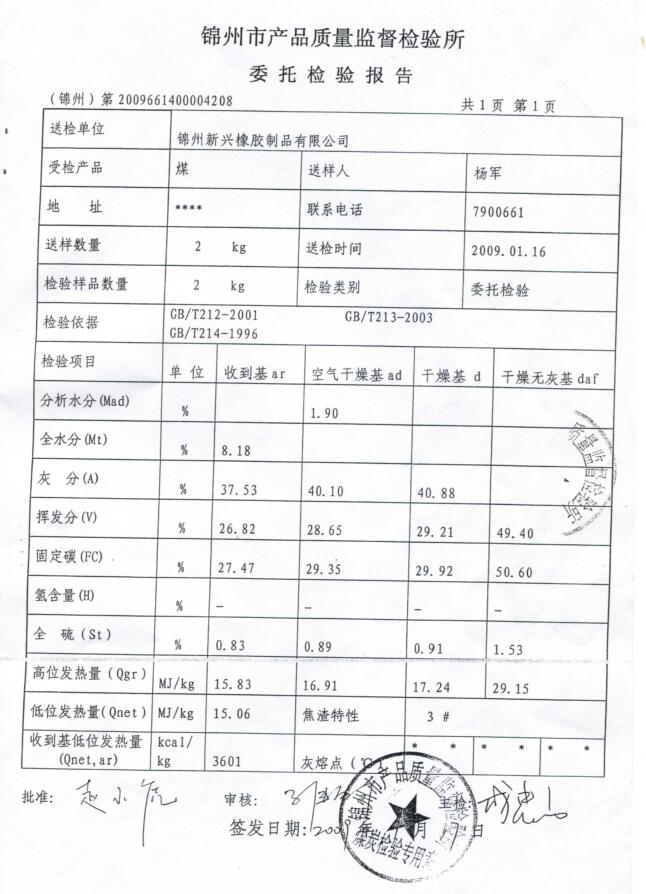 锦州市产品质量监督检验所
委托检验报告
(锦州)第2009661400004208 共1页 第1页
送检单位 锦州新兴橡胶制品有限公司
受检产品 煤 送样人 杨军
地 址 **** 联系电话 7900661
送样数量 2 kg 送检时间 2009.01.16
检验样品数量 2 kg 检验类别 委托检验
检验依据 GB/T212-2001 GB/T213-2003
GB/T214-1996
检验项目 单 位 收到基ar 空气干燥基ad 干燥基 d 干燥无灰基daf
分析水分(Mad) % 1.90
全水分(Mt) % 8.18
灰 分(A) % 37.53 40.10 40.88
挥发分(V) % 26.82 28.65 29.21 49.40
固定碳(FC) % 27.47 29.35 29.92 50.60
氢含量(H) % - - - -
全 硫(St) % 0.83 0.89 0.91 1.53
高位发热量(Qgr) MJ/kg 15.83 16.91 17.24 29.15
低位发热量(Qnet) MJ/kg 15.06 焦渣特性 3 #
收到基低位发热量(Qnet,ar) kcal/kg 3601 灰熔点( * * * * * *
质量监督检验所
批准: 审核: 主检:
签发日期: 月 日
锦州市产品质量监督检验所
煤炭检验专用章